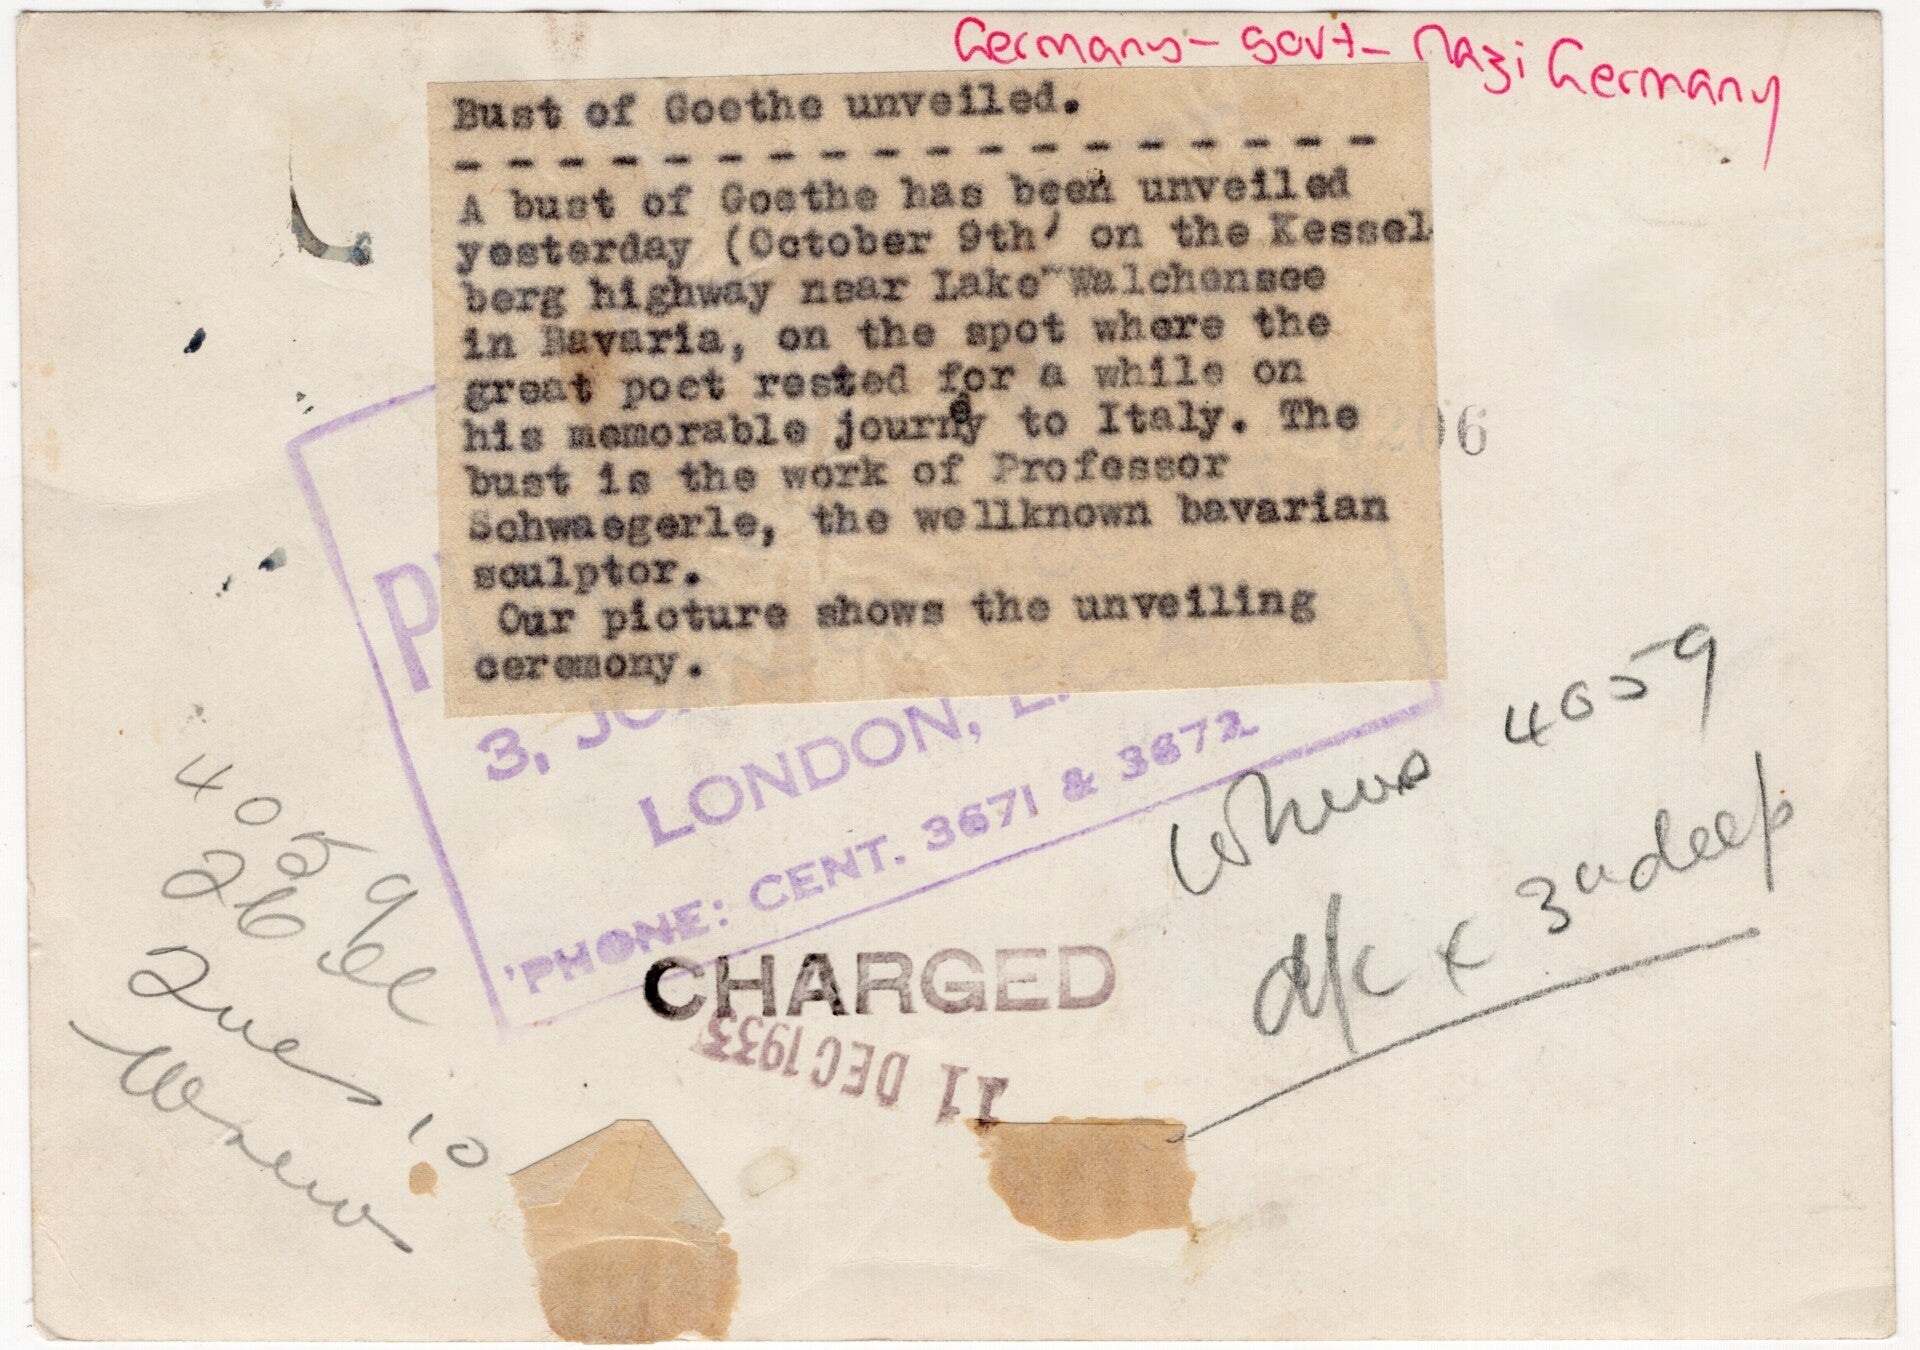 Germany - Govt - Nazi Germany
Bust of Goethe unveiled.
- - - - - - - - - - - - - - - - - - -
A bust of Goethe has been unveiled
yesterday (October 9th) on the Kessel-
berg highway near Lake "Walchensee
in Bavaria, on the spot where the
great poet rested for a while on
his memorable journey to Italy. The
bust is the work of Professor
Schwaegerle, the wellknown bavarian
sculptor.
Our picture shows the unveiling
ceremony.
206
P
3, JO
LONDON, E.
'PHONE: CENT. 3671 & 3672
CHARGED
11 DEC 1933
4059
d/c x 3" deep
4059
10